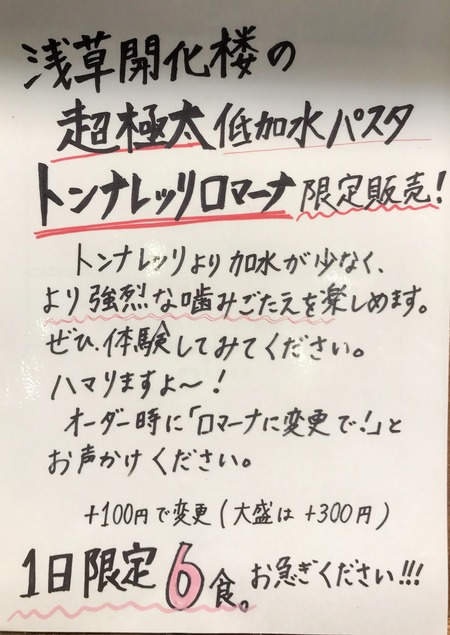 浅草開化楼の
超極太低加水パスタ
トンナレッリロマーナ限定販売!
トンナレッリより加水が少なく、
より強烈な噛みごたえを楽しめます。
ぜひ、体験してみてください。
ハマりますよ〜!
オーダー時に「ロマーナに変更で!」と
お声かけください。
+100円で変更(大盛は+300円)
1日限定6食。お急ぎください!!!